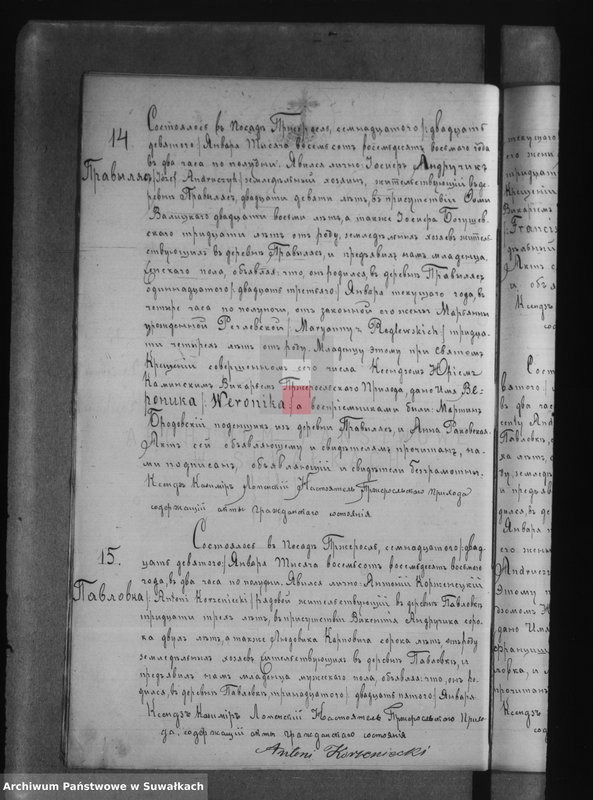 14
Правыляс
Состоялось въ посадѣ Пржеросль, семнадцатого /:двадцать
девятого:/ Января тысяча восемьсотъ восемьдесятъ восьмого года
въ два часа по полудни. Явился лично: Іосифъ Андручикъ
/:Józef Andruczyk:/ земледѣльный хозяинъ, жительствующій въ де-
ревнѣ Правылясъ, двадцати девяти лѣтъ, въ присутствіи Ѳомы
Валицкаго двадцати восьми лѣтъ, а также Іосифа Богушев-
скаго тридцати лѣтъ отъ роду, земледѣльныхъ хозяевъ житель-
ствующихъ въ деревнѣ Правылясъ, и предъявилъ намъ младенца
женскаго пола, объявляя: что, онъ родился, въ деревнѣ Правылясъ
одиннадцатого /:двадцать третьяго:/ Января текущаго года, въ
четыре часа по полуночи, отъ законной его жены Марьянны
урожденной Реглевской /:Maryanny z Reglewskich:/ тридца-
ти четырехъ лѣтъ отъ роду. Младенцу этому при Святомъ
Крещеніи совершенномъ сего числа Ксендзомъ
Каминскимъ Викаріемъ Пржеросльскаго Прихода, дано имя Ве-
роника /:Weronika:/ а воспріемниками были: Марцинъ
Бродовскій поденщикъ изъ деревни Правылясъ, и Анна Раковская.
Актъ сей объявляющему и свидѣтелямъ прочитанъ, на-
ми подписанъ, объявляющій и свидѣтели безграмотны.
Ксендзъ Казиміръ Лопенскій Настоятель Пржеросльскаго прихода
содержащій акты гражданскаго состоянія
15.
Павловка
Состоялось въ Посадѣ Пржеросль, семнадцатого /:двад-
цать девятого:/ Января тысяча восемьсотъ восемьдесятъ восьмого
года, въ два часа по полудни. Явился лично: Антоній Корженецкій
/:Antoni Korzeniecki:/ рядовой жительствующій въ деревнѣ Павловкѣ
тридцати трехъ лѣтъ, въ присутствіи Викентія Андручика соро-
ка двухъ лѣтъ, а также Людовика Карповича сорока лѣтъ отъ роду
земледѣльныхъ хозяевъ жительствующихъ въ деревнѣ Павловкѣ, и
предъявилъ намъ младенца мужескаго пола, объявляя: что, онъ ро-
дился, въ деревнѣ Павловкѣ, тринадцатого /:двадцать пятого:/ Января
Ксендзъ Казиміръ Лопенскій Настоятель Пржеросльскаго Прихо-
да, содержащій акты гражданскаго состоянія
Antoni Korzeniecki
Archiwum Państwowe w Suwałkach